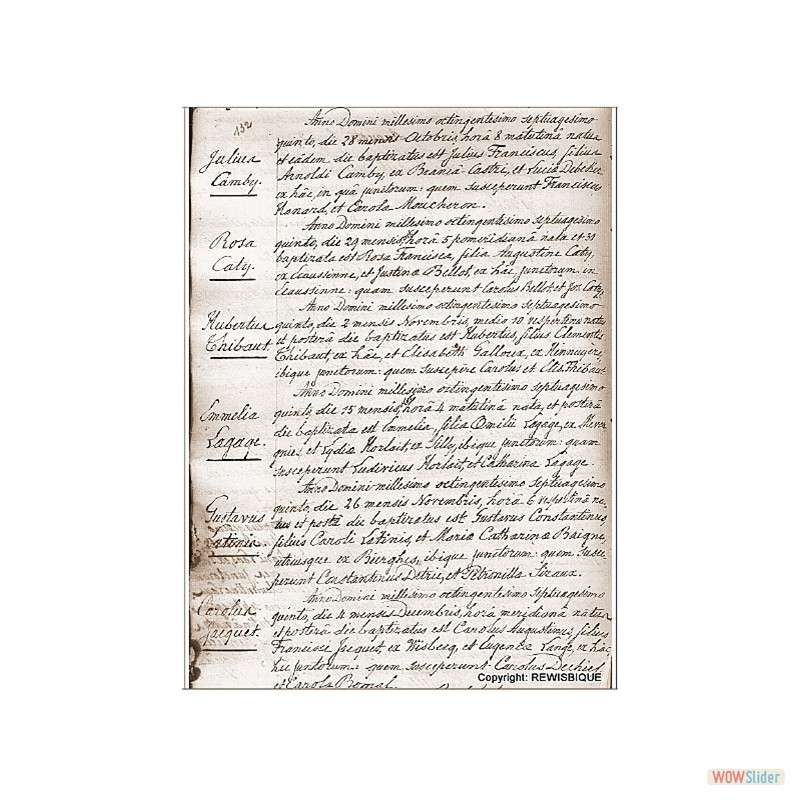 132
Anno Domini millesimo octingentesimo septuagesimo
quinto, die 28 mensis Octobris, horâ 8 matutinâ natus
Julius
et eâdem die baptizatus est Julius Franciscus, filius
Camby.
Arnoldi Camby, ex Brania-Castri, et Lucia Debecker
ex hâc, in quâ junctorum: quem susceperunt Franciscus
Hanard, et Carola Moucheron.
Anno Domini millesimo octingentesimo septuagesimo
Rosa
quinto, die 29 mensis, horâ 5 pomeridianâ nata et 31
Caty.
baptizata est Rosa Francisca, filia Augustine Caty,
ex Ecaussinne, et Justina Bellot, ex hâc, junctorum in
Ecaussinne: quam susceperunt Carolus Bellot, et Jos. Caty.
Anno Domini millesimo octingentesimo septuagesimo
Hubertus
quinto, die 2 mensis Novembris, medio 10 vespertinâ natus
Thibaut.
et posterâ die baptizatus est Hubertus, filius Clementis
Thibaut ex hâc, et Elisabeth Galloux, ex Hennuyeres,
ibique junctorum: quem suscepere Carolus et Thibaut
Anno Domini millesimo octingentesimo septuagesimo
Emmelia
quinto, die 15 mensis, horâ 4 matutinâ nata, et posterâ
Lagage.
die baptizata est Emmelia, filia Omilii Lagage, ex
et Lydia Horlait, ex Silly, ibique junctorum: quam
susceperunt Ludivicus Horlait, et Catharina Lagage.
Anno Domini millesimo octingentesimo septuagesimo
Gustavus
quinto, die 26 mensis Novembris, horâ 6 vespertinâ na-
Latinis.
tus et posterâ die baptizatus est Gustavus Constantinus
filius Caroli Latinis, et Maria Catharina Baigne,
utriusque ex Bierghes, ibique junctorum: quem susce-
perunt Constantinus Detrie, et Petronilla Siraux.
Anno Domini millesimo octingentesimo septuagesimo
Carolus
quinto, die 4 mensis Decembris, horâ meridianâ natus
Jacquet.
et posterâ die baptizatus est Carolus Augustinus, filius
Francisci Jacquet ex Wisbecq, et Eugenia Lange, ex hâc,
hic junctorum: quem susceperunt Carolus Dechief
et Carola Bomal.
Copyright: REWISBIQUE
WOWSlider